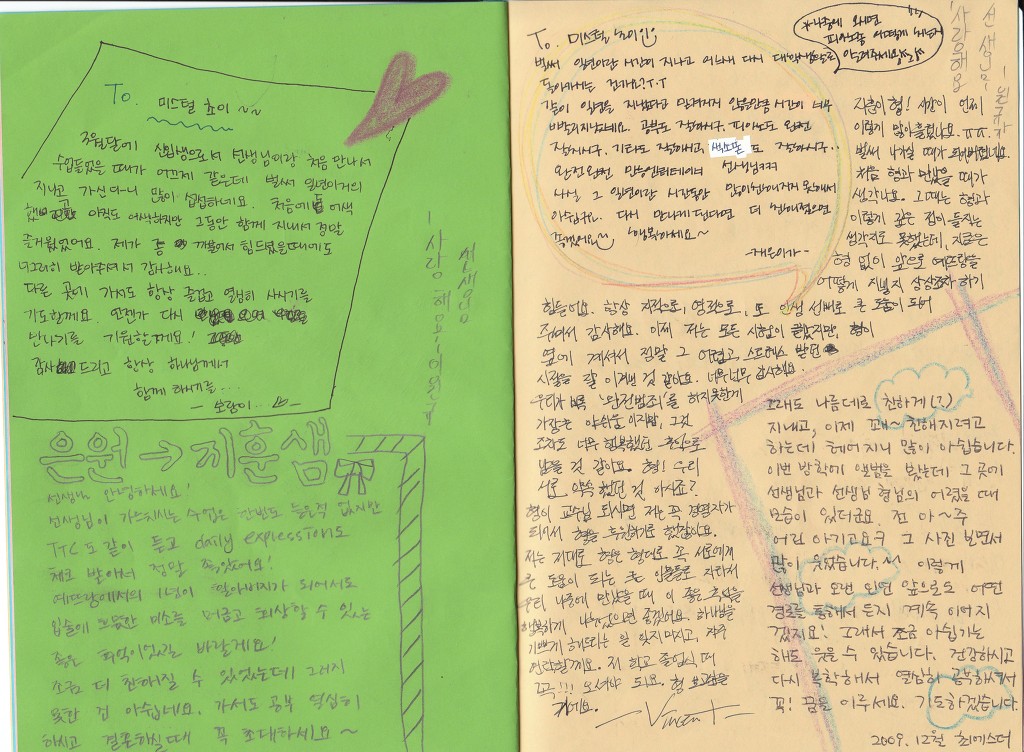 To. 미스털 초이 ~~
수업들었을 때가 어끄제 같은데 벌써 일년이거의
지나고 가신다니 많이 섭섭하네요. 처음에 어색
아직도 어색하지만 그동안 함께 지내서 정말
즐거웠었어요. 제가 좀 까불어서 힘드셨을때에도
너그러히 받아주셔서 감사해요..
다른 곳에 가서도 항상 즐겁고 열심히 사시기를
기도할께요. 언젠가 다시
만나기를 기원할께요!
감사드리고 항상 하나님께서
함께 하시기를...
- 보람이..
선생님
사랑해요
은원 → 지훈샘
선생님 안녕하세요!
선생님이 가르치시는 수업은 한번도 들은적 없지만
TTC도 같이 듣고 daily expressions도
체크 받아서 정말 좋았어요!
예뜨랑에서의 1년이 할아버지가 되어서도
입술에 흐뭇한 미소를 머금고 회상할 수 있는
좋은 추억이었길 바랄게요!
조금 더 친해질 수 있었는데 그러지
못한 건 아쉽네요. 가서도 공부 열심히
하시고 결혼하실때 꼭 초대하세요 ~
To. 미스털 초이
나중에 오시면
피아노를 어떻게
알려주세요
벌써 일년이란 시간이 지나고 어느새 다시 대학생으로
돌아가시는 건가요?T.T
같이 일년을 지냈다고 믿겨지지 않을만큼 시간이 너무
빨리지나갔네요. 공부도 잘하시구, 피아노도 완전
잘치시구, 기타도 잘하시고, 색소폰도 잘하시구..
완전완전 만능엔터테이너 선생님ㅋㅋㅋ
사실, 그 일년이란 시간동안 많이친해지지 못해서
아쉽구.. 다시 만나게 된다면 더 친해졌으면
좋겠어요 행복하세요~
선생님
사랑해요
지훈이형! 시간이 언제
이렇게 많이 흘렀나요. ㅠㅠ.
벌써 나가실 때가 되어버렸네요.
처음 형과 만났을 때가
생각나요. 그때는 형과
이렇게 깊은 정이 들지는
생각지도 못했는데, 지금은
형 없이 앞으로 예뜨랑을
어떻게 지낼지 상상조차 하기
힘들어요. 항상 지적으로, 영적으로, 또 인생 선배로 큰 도움이 되어
주셔서 감사해요. 이제 저는 모든 시험이 끝났지만, 형이
옆에 계셔서 정말 그 어렵고, 스트레스 받던
시절을 잘 이겨낸 것 같아요. 너무너무 감사해요.
우리가 비록 '완전범죄'를 하지못한게
가장은 아쉬움 이지만, 그것
조차도 너무 행복했던 추억으로
남을 것 같아요. 형! 우리
서로 약속 했던 것 아시죠?
형이 교수님 되시면 저는 꼭 경영자가
되어서 형을 후원하기로 했잖아요.
저는 저대로 형은 형대로 꼭 서로에게
큰 도움이 되는 큰 인물들로 자라서
우리 나중에 만났을 때 이 좋은 추억을
행복하게 나눴으면 좋겠어요. 하나님을
기쁘게 해드리는 일 잊지마시고, 자주
연락할게요. 저 학교 졸업식 때
꼭!!! 오셔야 되요. 형
- Vincent -
그래도 나름데로 친하게(?)
지내고, 이제 꽤~ 친해지려고
하는데 헤어지니 많이 아쉽습니다.
이번 방학에 앨범을 봤는데 그 곳에
선생님과 선생님 형님의 어렸을 때
모습이 있더군요. 전 아~주
어린 아기고요ㅋ 그 사진 보면서
많이 웃었습니다.^^ 이렇게
선생님과 오랜 인연 앞으로도 어떤
경로를 통해서 든지 계속 이어지
겠지요! 그래서 조금 아쉽기는
해도 웃을 수 있습니다. 건강하시고
다시 복학해서 열심히 공부하셔서
꼭! 꿈을 이루세요. 기도하겠습니다.
2009. 12월 최에스더